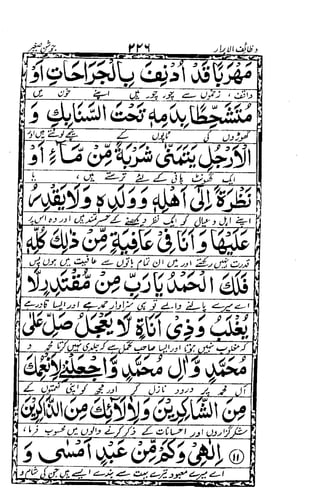 وظائف الابرار ۲۲۶ جوشن صغیر
مُهْرِيًا قَدْ اُدْنِفَ بِالْجَرَاحَاتِ اَوْ
زخموں سے چور چور میں اپنے خون میں
مُتَشَحِّطًا بِدَمِهِ تَحْتَ السَّنَابِكِ وَ
گھوڑوں کی ٹاپوں کے نیچے لوٹتے ہیں اور
الْاَرْجُلِ يَتَمَنّٰى شَرْبَةً مِّنْ مَّآءٍ اَوْ
ایک گھونٹ پانی کے لئے ترستے ہیں، یا
نَظْرَةً اِلٰى اَهْلِهِ وَوَلَدِهِ وَلَا يَقْدِرُ
اپنے اہل و عیال کو ایک نظر دیکھنے کے حسرتمند ہیں اور وہ اس پر
عَلَيْهَا وَ اَنَا فِىْ عَافِيَةٍ مِّنْ ذٰلِكَ كُلِّهٖ
قدرت نہیں رکھتے اور میں ان تمام باتوں سے عافیت میں ہوں پس
فَلَكَ الْحَمْدُ يَارَبِّ مِنْ مُّقْتَدِرٍ لَّا
اے میرے پالنے والے تو ہی سزاوار حمد ہے اور ایسا قادر ہے
يُغْلَبُ وَ ذِىْ اَنَاةٍ لَّا يَعْجَلُ صَلِّ عَلٰى
کہ مغلوب نہیں ہوتا اور ایسا صاحب تحمل ہے کہ جلدی نہیں کرتا محمد و
مُحَمَّدٍ وَّ اٰلِ مُحَمَّدٍ وَّ اجْعَلْنِىْ لِاَنْعُمِكَ
آل محمد پر درود نازل کر اور مجھ کو اپنی نعمتوں کے
مِنَ الشَّاكِرِيْنَ وَ لِاٰلَآئِكَ مِنَ الذَّاكِرِيْنَ
شکر گزاروں اور احسانات کے ذکر کرنے والوں میں محسوب فرما،
۱۱ اِلٰهِىْ وَ كَمْ مِّنْ عَبْدٍ اَمْسٰى وَ
اے میرے معبود تیرے بہت سے بندے ایسے ہیں جن کی شام و